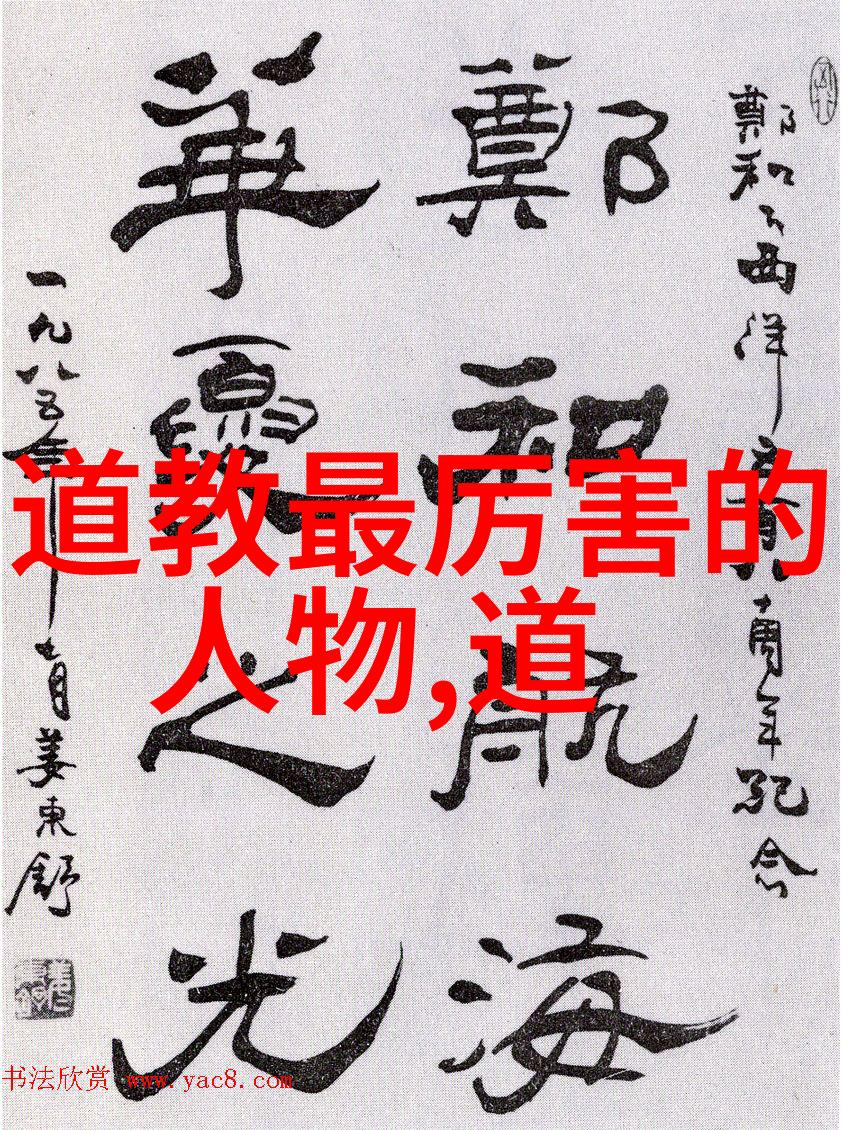 鄭和下西洋五百八十周年紀念
鄭和航海
華夏之光
一九八五年十一月姜東舒
道教最厉害的
人物,道
书法欣赏 www.yac8.com